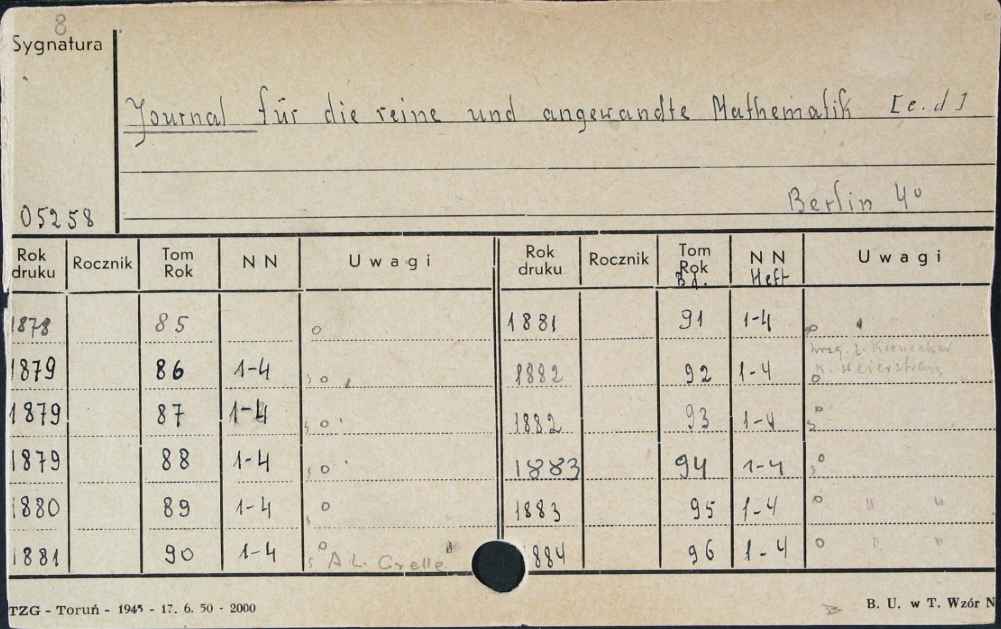 8
Sygnatura
Journal für die reine und angewandte Mathematik [e.d]
Berlin 4°
05258
Rok druku Rocznik Tom Rok NN Uwagi Rok druku Rocznik Tom Rok Bd. NN Heft Uwagi
1878 85 o 1881 91 1-4
1879 86 1-4 o 1882 92 1-4 o
1879 87 1-4 o 1882 93 1-4 o
1879 88 1-4 o 1883 94 1-4 o
1880 89 1-4 o 1883 95 1-4 o " "
1881 90 1-4 o A L. Crelle 1884 96 1-4 o " "
TZG - Toruń - 1945 - 17. 6. 50 - 2000
B. U. w T. Wzór N